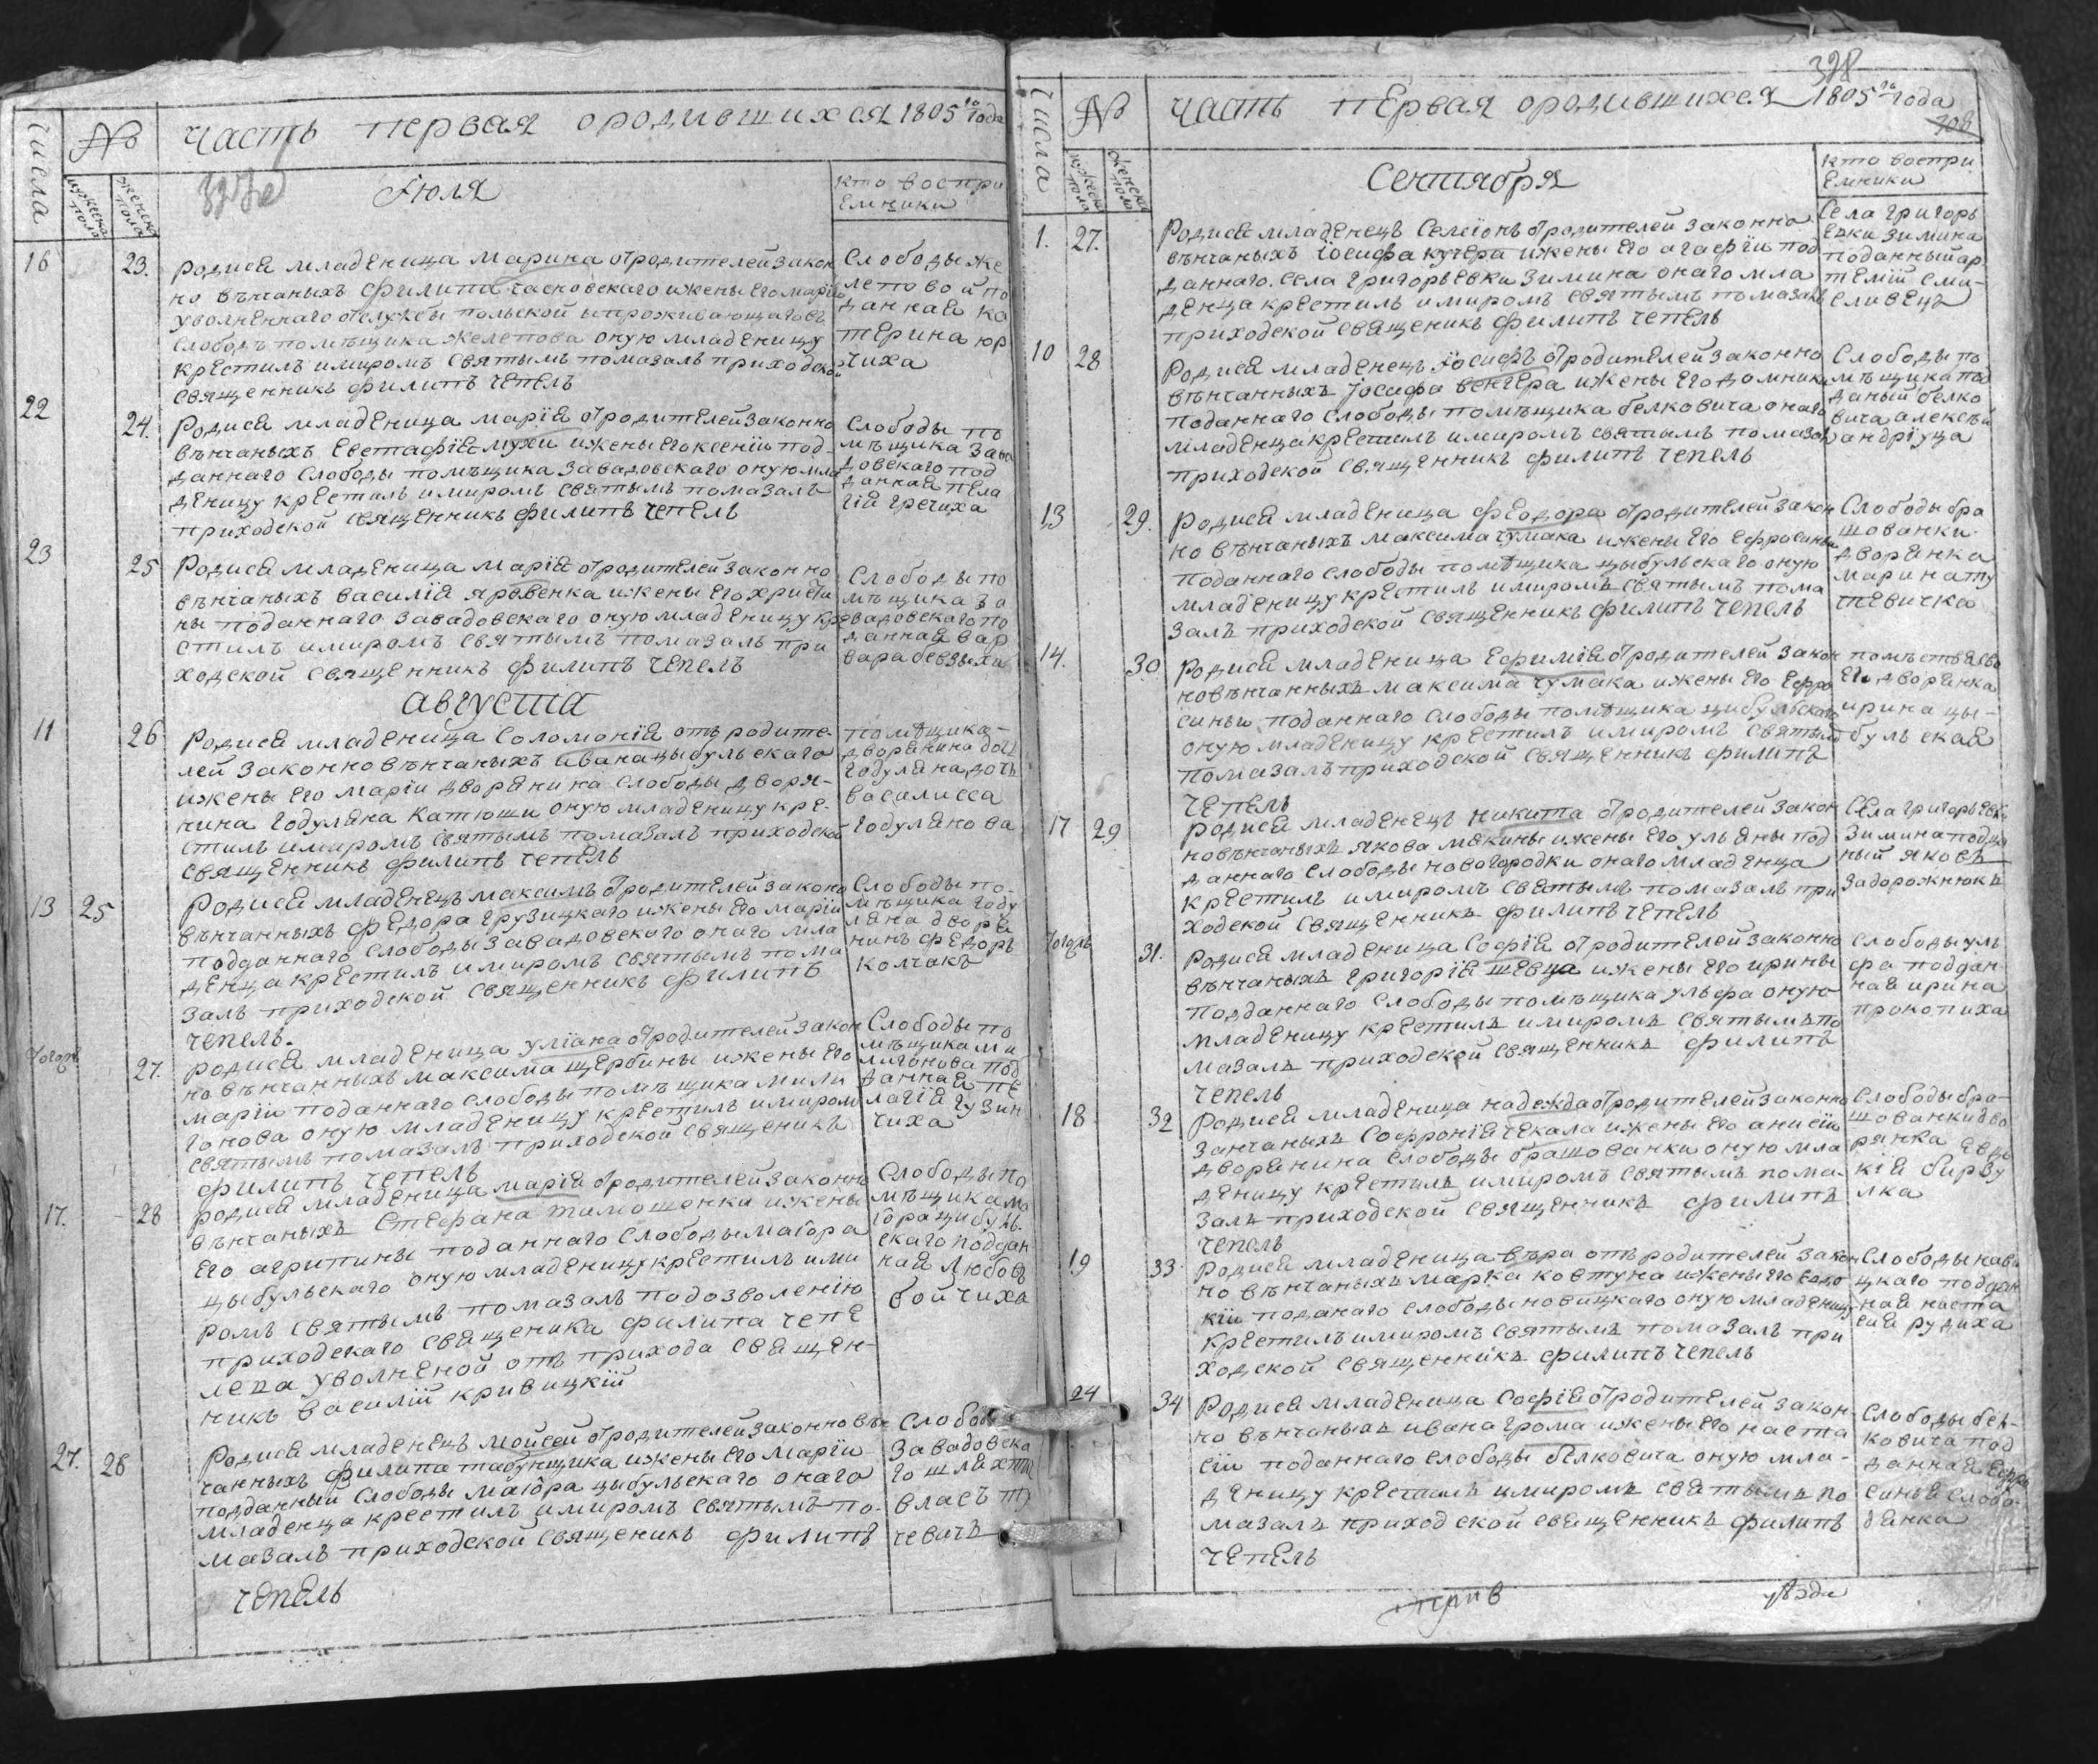 Числа
№
часть первая ородившихся 1805го года
мужеска пола
женска пола
Июля
кто воспри
емники
16
23.
родися младеница марина отродителей закон
но вѣнчаныхъ филипа
уволненнаго отслужбы польской ипроживающаго въ
слободѣ помѣщика желетова оную младеницу
крестилъ имиромъ святымъ помазалъ приходской
священникъ филипъ чепель
слободы же
летовой по
данная ка
терина юр
чиха
22
24.
Родися младеница марія отродителей законно
вѣнчаныхъ Евстафія мухи ижены его ксеніи под
даннаго слободы помѣщика завадовскаго оную мла
деницу крестилъ имиромъ святымъ помазалъ
приходской священникъ филипъ чепель
слободы по
мѣщика зава
довскаго под
данная пела
гія гречиха
23
25
Родися младеница марія отродителей законно
вѣнчаныхъ василія яровенка ижены его христи
ны поданнаго завадовскаго оную младеницу кре
стилъ имиромъ святымъ помазалъ при
ходской священникъ филипъ чепель
слободы по
мѣщика за
вадовскаго по
данная вар
вара
августа
11
26
Родися младеница Соломонія отъ родите
лей законно вѣнчаныхъ ивана цыбульскаго
ижены его маріи дворянина слободы дворя-
нина годуляна катюши оную младеницу кре-
стилъ имиромъ святымъ помазалъ приходской
священникъ филипъ чепель
помѣщика
дворянина
годуляна дочь
василисса
годулянова
13
25
Родися младенецъ максимъ отродителей законо
вѣнчанныхъ федора грузицкаго ижены его маріи
подданнаго слободы завадовскаго онаго мла
денца крестилъ имиромъ святымъ пома
залъ приходской священникъ филипъ
чепель.
слободы по-
мѣщика году
ляна дворя
нинъ федоръ
колчакъ
Тогожъ
27.
родися младеница уліана отродителей закон
но вѣнчанныхъ максима щербины ижены его
маріи поданнаго слободы помѣщика мили
гонова оную младеницу крестилъ имиромъ
святымъ помазалъ приходской священикъ
филипъ чепель
Слободы по
мѣщика ми
лигонова под
данная пе
лагія гузин
чиха
17.
28
родися младеница марія отродителей законно
вѣнчаныхъ Стефана тимошенка ижены
его агрипины поданнаго слободы маіора
цыбульскаго оную младеницу крестилъ ими
ромъ святымъ помазалъ подозволенію
приходскаго священика филипа чепе
леваa уволненой отъ прихода священ-
никъ василій кривицкій
слободы по
мѣщика ма
іора цибуль
скаго поддан
ная Любовъ
бойчиха
27.
26
Родися младенецъ мойсей отродителей законно вѣн
чанныхъ филипа табунщика ижены его маріи
подданный слободы маіора цыбульскаго онаго
младенца крестилъ имиромъ святымъ по-
мазалъ приходской священикъ филипъ
чепель
слободы
завадовска
го шляхтич
власъ
чевичъ
Числа
№
часть первая ородившихся 1805го года
398
708
мужеска пола
женска пола
Сентября
кто воспри
емники
1.
27.
Родися младенецъ Семіонъ отродителей законно
вѣнчаныхъ іосифа кучера ижены его агафіи под
даннаго села григорьевки зимина онаго мла
денца крестилъ имиромъ святымъ помазалъ
приходской священикъ филипъ чепель
села григорь
евки зимина
поданный ар
темій сми-
сливецъ
10
28
Родися младенецъ іосифъ отродителей законно
вѣнчанныхъ іосифа венгера ижены его домники
поданнаго слободы помѣщика белковича онаго
младенца крестилъ имиромъ святымъ помазалъ
приходской священникъ филипъ чепель
слободы по
мѣщика под
даный белко
вича алексѣй
андріуца
13
29.
Родися младеница феодора отродителей закон
но вѣнчаныхъ максима чумака ижены его ефросины
поданнаго слободы помѣщика цыбульскаго оную
младеницу крестилъ имиромъ святымъ пома
залъ приходской священникъ филипъ чепель
слободы бра
шованки
дворянка
марина ту
тевичка
14.
30
Родися младеница Ефимія отродителей закон
новѣнчанныхъ максима чумака ижены его ефро
синьи поданнаго слободы помѣщика цибульскаго
оную младеницу крестилъ имиромъ святымъ
помазалъ приходской священикъ филипъ
чепель
дворянка
ирина цы-
бульская
17
29
родися младенецъ никита отродителей закон
новѣнчаныхъ якова макины ижены его ульяны под
даннаго слободы новогородки онаго младенца
крестилъ имиромъ святымъ помазалъ при
ходской священникъ филипъ чепель
села григорьевк
зимина подда
ный яковъ
задорожнюкъ
Тогожъ
31.
родися младеница Софія отродителей законно
вѣнчаныхъ григорія шевца ижены его ирины
подданнаго слободы помѣщика ульфа оную
младеницу крестилъ имиромъ святымъ по
мазалъ приходской священникъ филипъ
чепель
слободы уль
фа поддан
ная ирина
прокопиха
18
32
Родися младеница надежда отродителей законно
занчаныхъ Софронія чекала ижены его анисіи
дворянина слободы брашованки оную мла
деницу крестилъ имиромъ святымъ пома-
залъ приходской священникъ филипъ
чепель
слободы бра-
шованки дво
рянка евдо
кія бирзу
лка
19
33
Родися младеница вѣра отъ родителей закон
но вѣнчаныхъ марка ковтуна ижены его евдо
кіи поданаго слободы новицкаго оную младеницу
крестилъ имиромъ святымъ помазалъ при
ходской священникъ филипъ чепель
слободы нови
цкаго поддан
ная наста
сия рудиха
24
34
Родися младеница Софія отродителей закон-
но вѣнчаныхъ ивана грома ижены его наста
сіи поданнаго слободы белковича оную мла-
деницу крестилъ имиромъ святымъ по
мазалъ приходской священникъ филипъ
чепель
слободы бел-
ковича под
данная ефро
синья слобо-
дянка